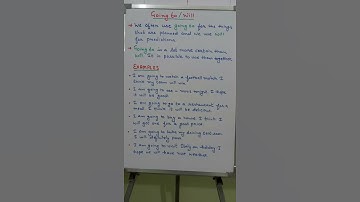 Going to / Will
→ We often use going to for the things
that are planned and we use will
for predictions.
→ Going to is a lot more certain than
will. It is possible to use them together.
EXAMPLES
- I am going to watch a football match. I
hope my team will win.
- I am going to see a movie tonight. I hope
it will be good.
- I am going to go to a restaurant for a
meal. I think it will be delicious.
- I am going to buy a house. I think I
will get one for a good price.
- I am going to take my driving test soon.
I will definitely pass.
- I am going to visit Italy on holiday. I
hope we will have nice weather.